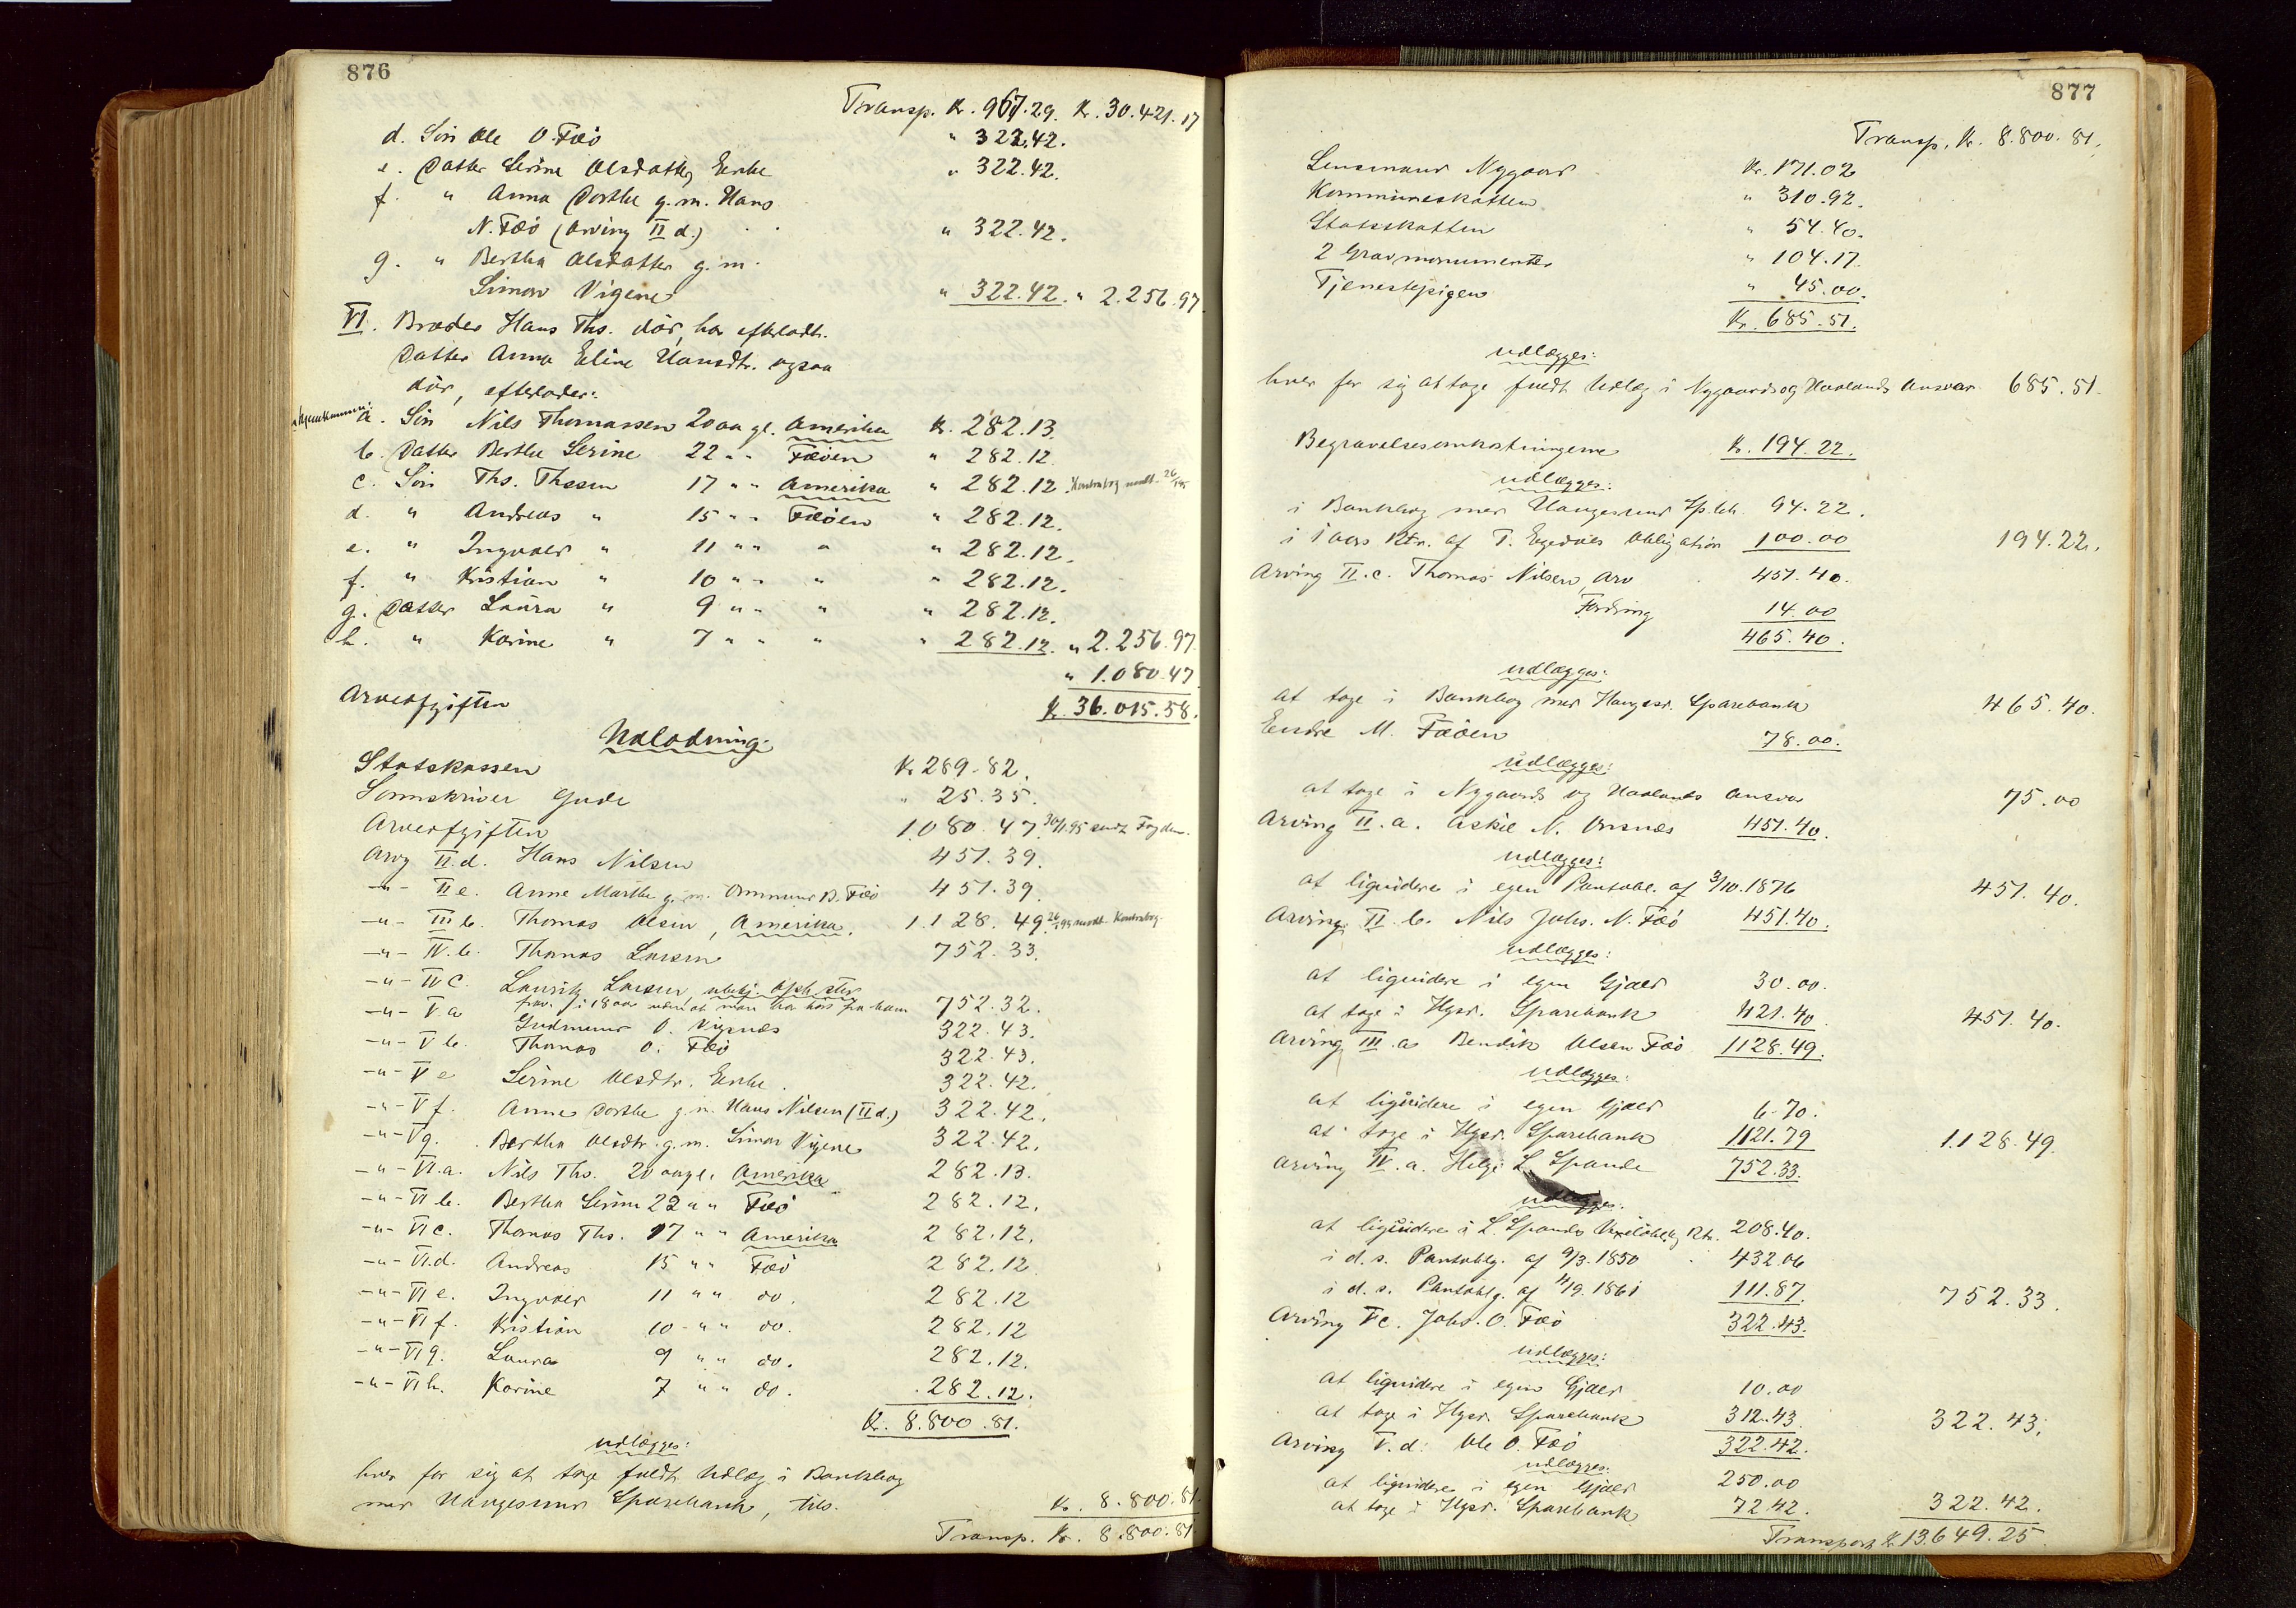 876
Transp. Kr. 967.29. Kr. 30.421.17
d. Søn Ole O. Fæø " 322.42.
e. Datter Serine Olsdatter, Enke " 322.42.
f. " Anna Dorthe g. m. Hans
N. Fæø (Arving II d.) " 322.42.
g. " Bertha Olsdatter g. m.
Simon Vigene " 322.42. " 2.256.97
VI. Broder Hans Ths. død, har efterladt:
Datter Anna Eline Hansdtr. ogsaa
død, efterlader:
a. Søn Nils Thomassen 20 aar gl. Amerika Kr. 282.13.
b. Datter Berthe Serine 22 " " Fæøen " 282.12
c. Søn Ths. Thssen 17 " " Amerika " 282.12.
d. " Andreas " 15 " " Fæøen " 282.12.
e. " Ingvald " 11 " " " " 282.12.
f. " Kristian " 10 " " " " 282.12.
g. Datter Laura " 9 " " " " 282.12.
h. " Karine " 7 " " " " 282.12. " 2.256.97
" 1.080.47
Arveafgiften Kr. 36.015.58.
Udlodning:
Statskassen Kr. 289.82.
Sorenskriver Gude " 25.35.
Arveafgiften 1.080.47. 30/1.95 sendt Fogden.
Arvg II.d. Hans Nilsen 451.39.
-"- II e. Anne Marthe g. m. Ommund B. Fæø 451.39.
-"- III b. Thomas Olsen, Amerika. 1.128.49.
-"- IV.b. Thomas Larsen 752.33.
-"- IV C. Lauritz Larsen ubekj. Oph.sted
752.32.
-"- V a Gudmund O. Vigenæs 322.43.
-"- V b. Thomas O. Fæø 322.43.
-"- V e Serine Olsdtr. Enke. 322.42.
-"- V f. Anne Dorthe g. m. Hans Nilsen (II d.) 322.42.
-"- V g. Bertha Olsdtr. g. m. Simon Vigene 322.42.
-"- VI.a. Nils Ths. 20 aar gl. Amerika 282.13.
-"- VI b. Bertha Serine 22 " " Fæø 282.12.
-"- VI c. Thomas Ths. 17 " " Amerika 282.12.
-"- VI.d. Andreas 15 " " Fæø 282.12
-"- VI e. Ingvald 11 " " do. 282.12
-"- VI f. Kristian 10 " " do. 282.12
-"- VI g. Laura 9 " " do. 282.12.
-"- VI h. Karine 7 " " do. 282.12.
Kr. 8.800.81.
udlægges:
hver for sig at tage fuldt Udlæg i Bankbog
med Haugesund Sparebank, tils. Kr. 8.800.81
Transp. Kr. 8.800.81
877
Transp. Kr. 8.800.81.
Lensmand Nygaard Kr. 171.02
Kommuneskatten " 310.92.
Statsskatten " 54.40.
2 Gravmonumenter " 104.17.
Tjenestepigen " 45.00.
Kr. 685.51.
udlægges:
hver for sig at tage fuldt Udlæg i Nygaards og Haalands Ansvar 685.51.
Begravelsesomkostningerne Kr. 194.22.
udlægges:
i Bankbog med Haugesund Sp.bk. 94.22.
i 1 aars Rtr. af T. Obligation 100.00 194.22.
Arving II.c. Thomas Nilsen, Arv 451.40.
Fordring 14.00
465.40.
udlægges:
at tage i Bankbog med Haugesd. Sparebank 465.40.
Endre M. Fæøen 78.00.
udlægges:
at tage i Nygaards og Haalands Ansvar 75.00
Arving II.a. Askil N. 451.40.
udlægges:
at liquidere i egen Pantobl. af 3/10.1876 451.40.
Arving II b. Nils Johs. N. Fæø 451.40.
udlægges:
at liquidere i egen Gjæld 30.00.
at tage i Hgsd. Sparebank 421.40. 451.40.
Arving III.a Bendik Olsen Fæø 1128.49.
udlægges:
at liquidere i egen Gjæld 6.70.
at tage i Hgsd. Sparebank 1121.79 1.128.49.
Arving IV.a. Helge L. Spande 752.33.
udlægges:
at liquidere i L. Spandes Rtr. 208.40.
i d. s. Pantoblg. af 9/3.1850 432.06
i d. s. Pantoblg. af 4/9.1861 111.87. 752.33.
Arving V c. Johs. O. Fæø 322.43.
udlægges:
at liquidere i egen Gjæld 10.00
at tage i Hgsd. Sparebank 312.43. 322.43.
Arving V.d. Ole O. Fæø 322.42.
udlægges:
at liquidere i egen Gjæld 250.00
at tage i Hgsd. Sparebank 72.42. 322.42.
Transport Kr. 13.649.25